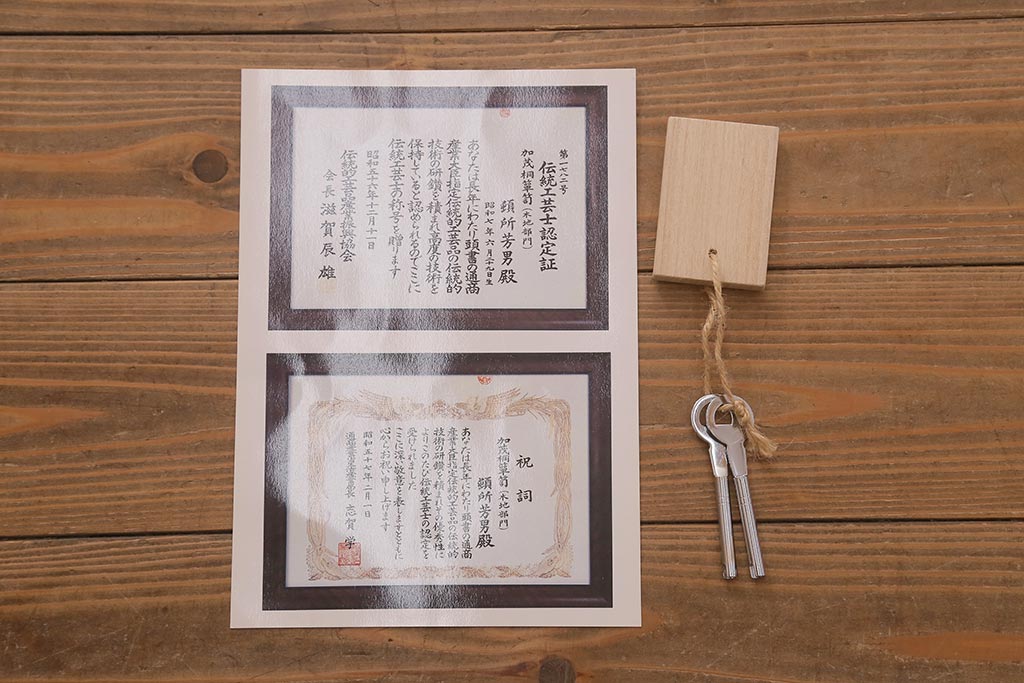 第一七八二号
伝統工芸士認定証
加茂桐簞笥（木地部門）
顕所芳男殿
昭和七年六月二十九日生
あなたは長年にわたり頭書の通商
産業大臣指定伝統的工芸品の伝統的
技術の研鑽を積まれ高度の技術を
保持していると認められるのでここに
伝統工芸士の称号を贈ります
昭和五十六年十二月十一日
伝統的工芸品産業振興協会
会長 滋賀辰雄
祝詞
加茂桐簞笥（木地部門）
顕所芳男殿
あなたは長年にわたり頭書の通商
産業大臣指定伝統的工芸品の伝統的
技術の研鑽を積まれその優秀性に
よりこのたび伝統工芸士の認定を
受けられました
ここに深く敬意を表しますとともに
心からお祝い申し上げます
昭和五十七年二月一日
志賀学